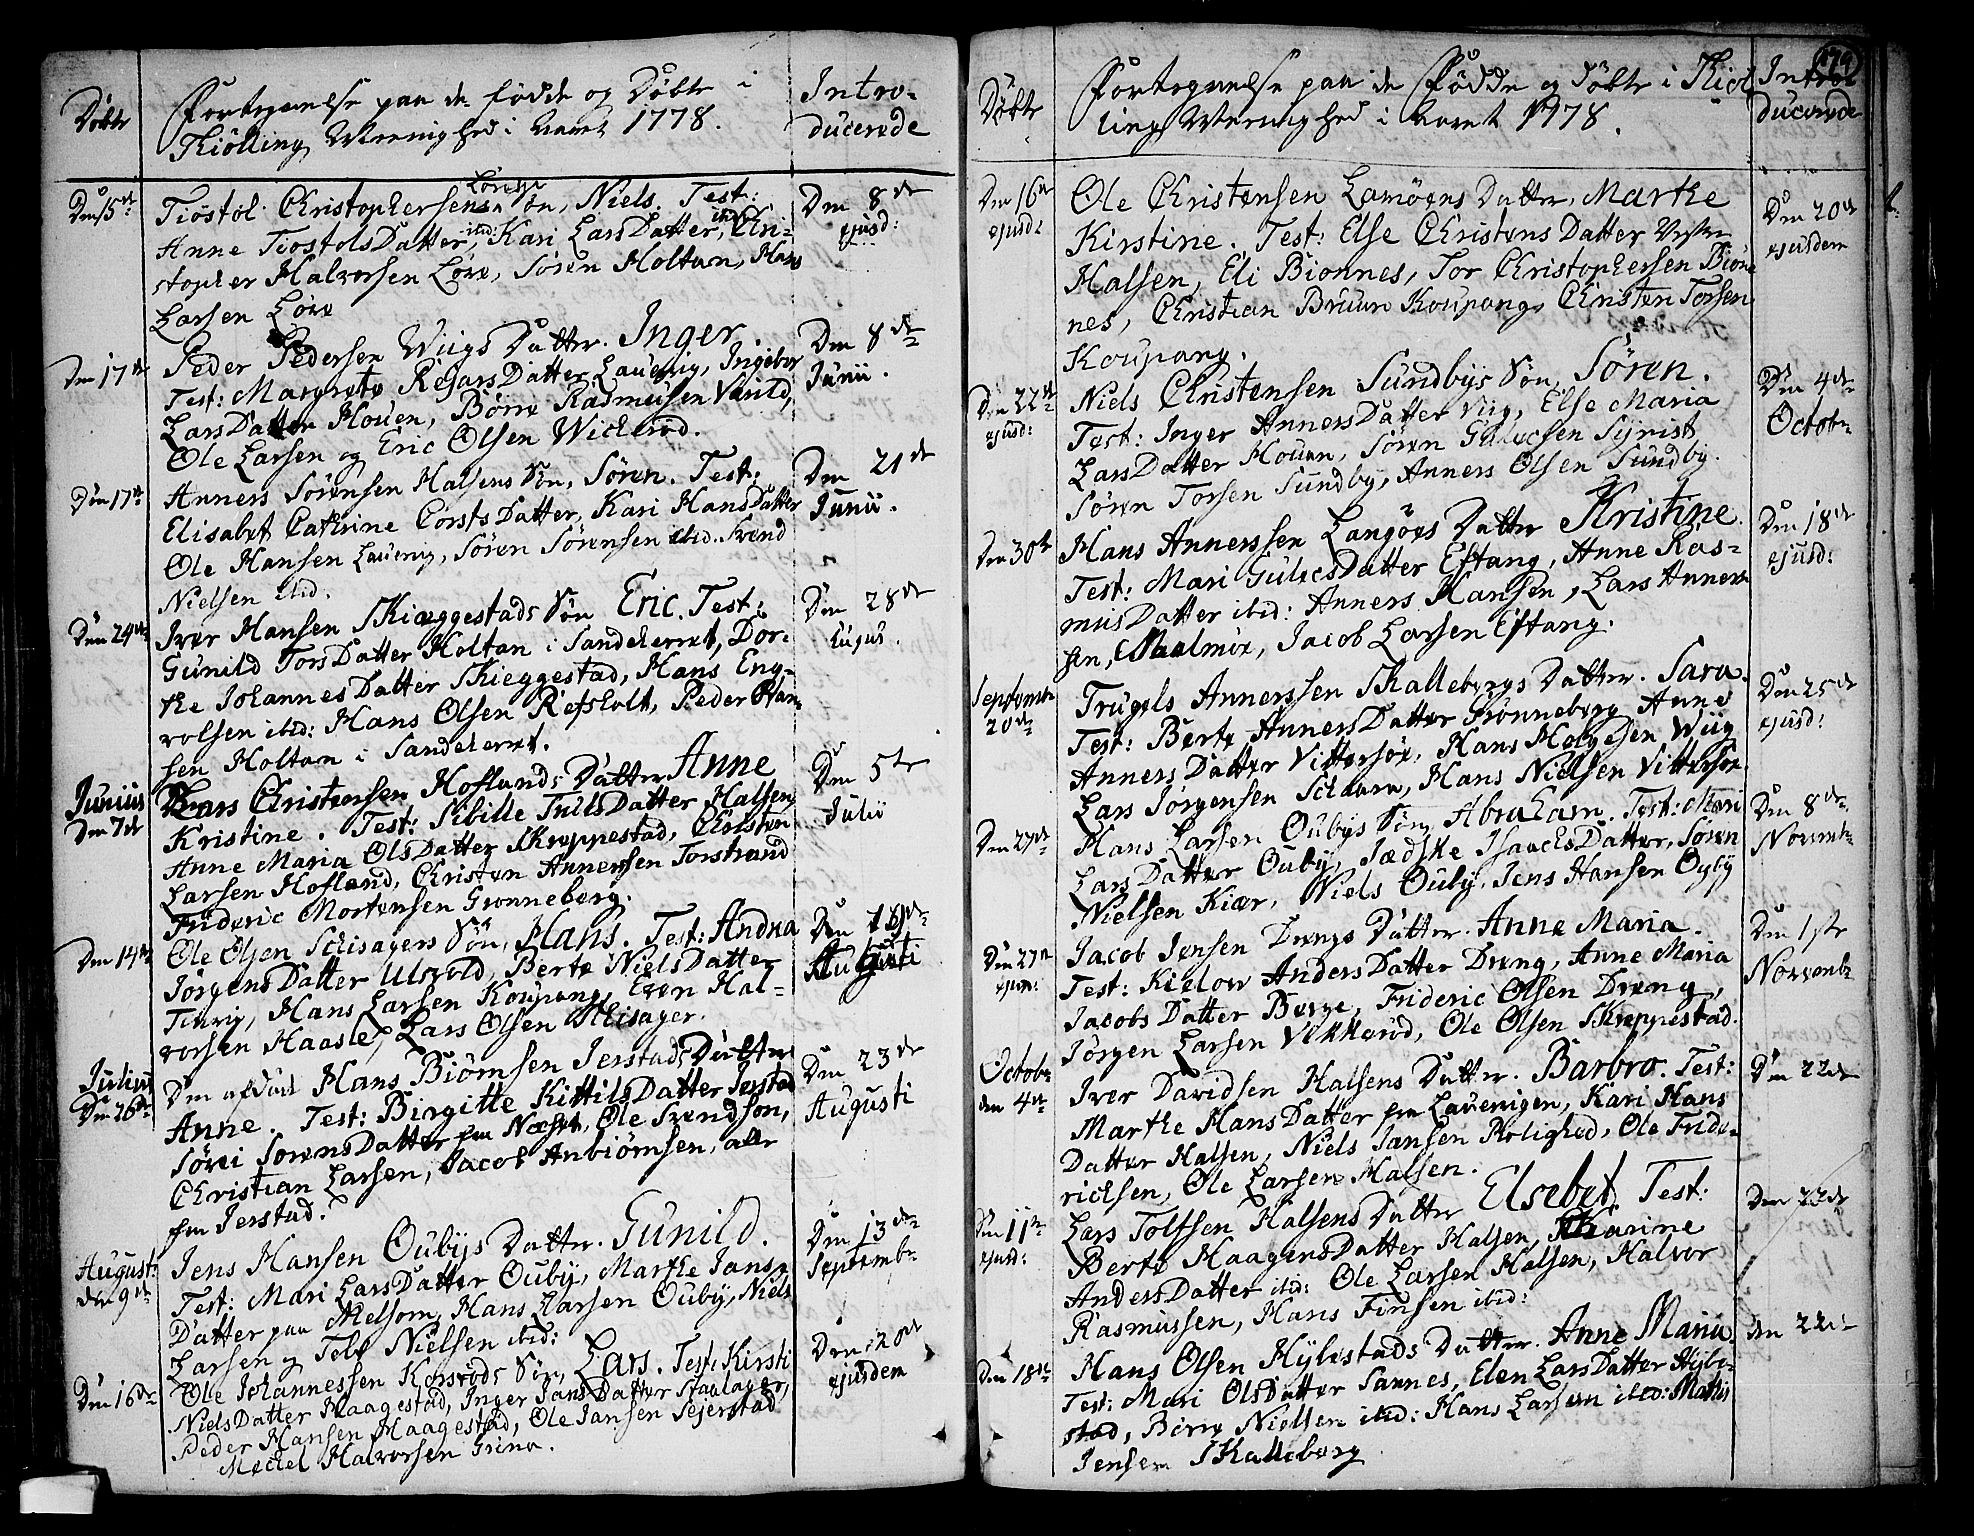 Døbte
Fortegnelse paa de fødde og Døbte i
Thiölling Meenighed i Aaret 1778.
Intro-
ducerede
Den 15de
Tiostol Christophersens Løves Søn, Niels. Test:
Anne TiostolsDatter ibid: Kari LarsDatter ibid: Chri-
stopher Halvorsen Løve, Sören Holtan, Hans
Larsen Löve
Den 8de
ejusd:
Den 17de
Peder Pedersen Wiigs Datter. Inger.
Test: Margrete ReJarsDatter Lauerig, Ingebor
LarsDatter Houen, Börre Rasmusen Varild,
Ole Larsen og Eric Olsen Wicherød.
Den 8de
Junii.
Den 17de
Anners Sörensen Halsens Søn, Sören. Test:
Elisabet Cathrine CorstsDatter, Kari HansDatter
Ole Hansen Lauerig, Sören Sörensen ibid. Svend
Nielsen ibid.
Den 21de
Junii.
Den 24de
Iver Hansen Skieggestads Søn Eric. Test:
Gunild TorsDatter Holtan i Sandeherret, Dor-
the JohannesDatter Skieggestad, Hans Eng-
volsen ibid: Hans Olsen Refsholt, Peder Han-
sen Holtan i Sandeherret.
Den 28de
hujus.
Junius
Den 7de
Lars Christensen Hoflands Datter Anne
Kristine. Test: Sibille TruilsDatter Halsen,
Anne Maria OlsDatter Skreppestad, Christen
Larsen Hofland, Christen Annersen Torstrand
Frideric Mortensen Grønneberg.
Den 5te
Julii
Den 14de
Ole Olsen Schisagers Søn, Hans. Test: Andrea
JörgensDatter Ulevold, Berte NielsDatter
Tinvig, Hans Larsen Koupang, Even Hal-
vorsen Haasle, Lars Olsen Schisager.
Den
Augusti
Julius
Den 26de
Den afdøde Hans Biömsen Jerstads Datter
Anne. Test: Birgitte KittilsDatter Jerstad
Sörei SorensDatter fra Næset, Ole Svendsen,
Christian Larsen, Jacob Anbiömsen, alle
fra Jerstad.
Den 23de
Augusti
August:
den 9de
Jens Hansen Oubÿs Datter. Gunild.
Test: Mari LarsDatter Oubÿ, Marthe Jans-
Datter paa Melsom, Hans Larsen Oubÿ, Niels
Larsen og Tolv Nielsen ibid:
Den 13de
Septembr
Den 16de
Ole Johannessen Korsrøds Søn, Lars. Test: Kirsti
NielsDatter Haagestad, Inger JansDatter Staalager,
Peder Hansen Haagestad, Ole Jansen Sejerstad
Mechel Halvorsen Grina.
Den 20de
ejusdem
179
Døbte
Fortegnelse paa de Fødde og Döbte i Thiöl
ling Meenighed i Aaret 1778.
Introe
ducerede
Den 16de
ejusd:
Ole Christensen Lamöens Datter, Marthe
Kirstine. Test: Else ChristensDatter Vestre
Halsen, Eli Bionnes, Tor Christophersen Bion-
nes, Christian Bruun Koupang, Christen Torsen
Koupang.
Den 20de
ejusdem
Den 22de
ejusd:
Niels Christensen Sundbÿs Søn, Søren.
Test: Inger AnnersDatter Viig, Else Maria
LarsDatter Houen, Sören Gulvesen Sijrist
Sören Torsen Sundbÿ, Anners Olsen Sundbÿ.
Den 4de
Octobr
Den 30te
Hans Annerssen Langöes Datter Kristine.
Test: Mari GulvesDatter Eftang, Anne Ras-
musDatter ibid: Anners Hansen, Lars Anners-
sen, Malmöe, Jacob Larsen Eftang.
Den 18de
ejusd:
Septembr
20de
Trugels Annerssen Skallebergs Datter. Sara.
Test: Berte AnnersDatter Grönneberg, Anne
AnnersDatter Vittersöe, Hans Holgesen Wiig
Lars Jörgensen Schaara, Hans Nielsen Vittersöe
Den 25de
ejusd:
Den 27de
Hans Larsen Oubÿs Søn, Abraham. Test: Mari
LarsDatter Oubÿ, Jædske IsaachsDatter, Sören
Nielsen Kiær, Niels Oubÿ, Jens Hansen Oubÿ
Den 8de
Novembr
Den 27de
ejusd:
Jacob Jensen Drengs Datter. Anne Maria.
Test: Kielow AndersDatter Dreng, Anne Maria
JacobsDatter Berge, Frideric Olsen Dreng,
Jörgen Larsen Vekkerød, Ole Olsen Skreppestad.
Den 1ste
Novembr
Octobr
den 4de
Iver Davidsen Halsens Datter. Barbro. Test:
Marthe HansDatter fra Lauerigen, Kari Hans
Datter Halsen, Niels Jansen Rolighed, Ole Fride-
richsen, Ole Larsen Halsen.
Den 22de
Den 11te
ejusd:
Lars Tolfsen Halsens Datter Elsebet. Test:
Berte HaagensDatter Halsen, Karine
AndersDatter ibid: Ole Larsen Halsen, Halvor
Rasmussen, Hans Finsen ibid:
Den 22de
Den 18de
Hans Olsen Hÿbestads Datter. Anne Maria
Test: Mari OlsDatter Sannes, Elen LarsDatter Hÿbe-
stad, Börre Nielsen ibid: Hans Larsen ibid: Mathis
Jensen Skalleberg
den 22de